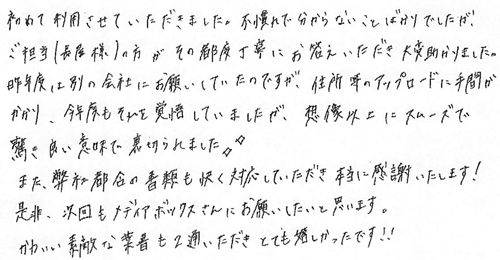 初めて利用させていただきました。不慣れで分からないことばかりでしたが、
ご担当(長屋様)の方がその都度丁寧にお答えいただき大変助かりました。
昨年度は別の会社にお願いしていたのですが、住所等のアップロードに手間が
かかり、今年度もそれを覚悟していましたが、想像以上にスムーズで
驚き良い意味で裏切られました♪♪
また、弊社都合の書類も快く対応していただき本当に感謝いたします!
是非、次回もメディアボックスさんにお願いしたいと思います。
かわいい素敵な葉書も2通いただきとても嬉しかったです!!